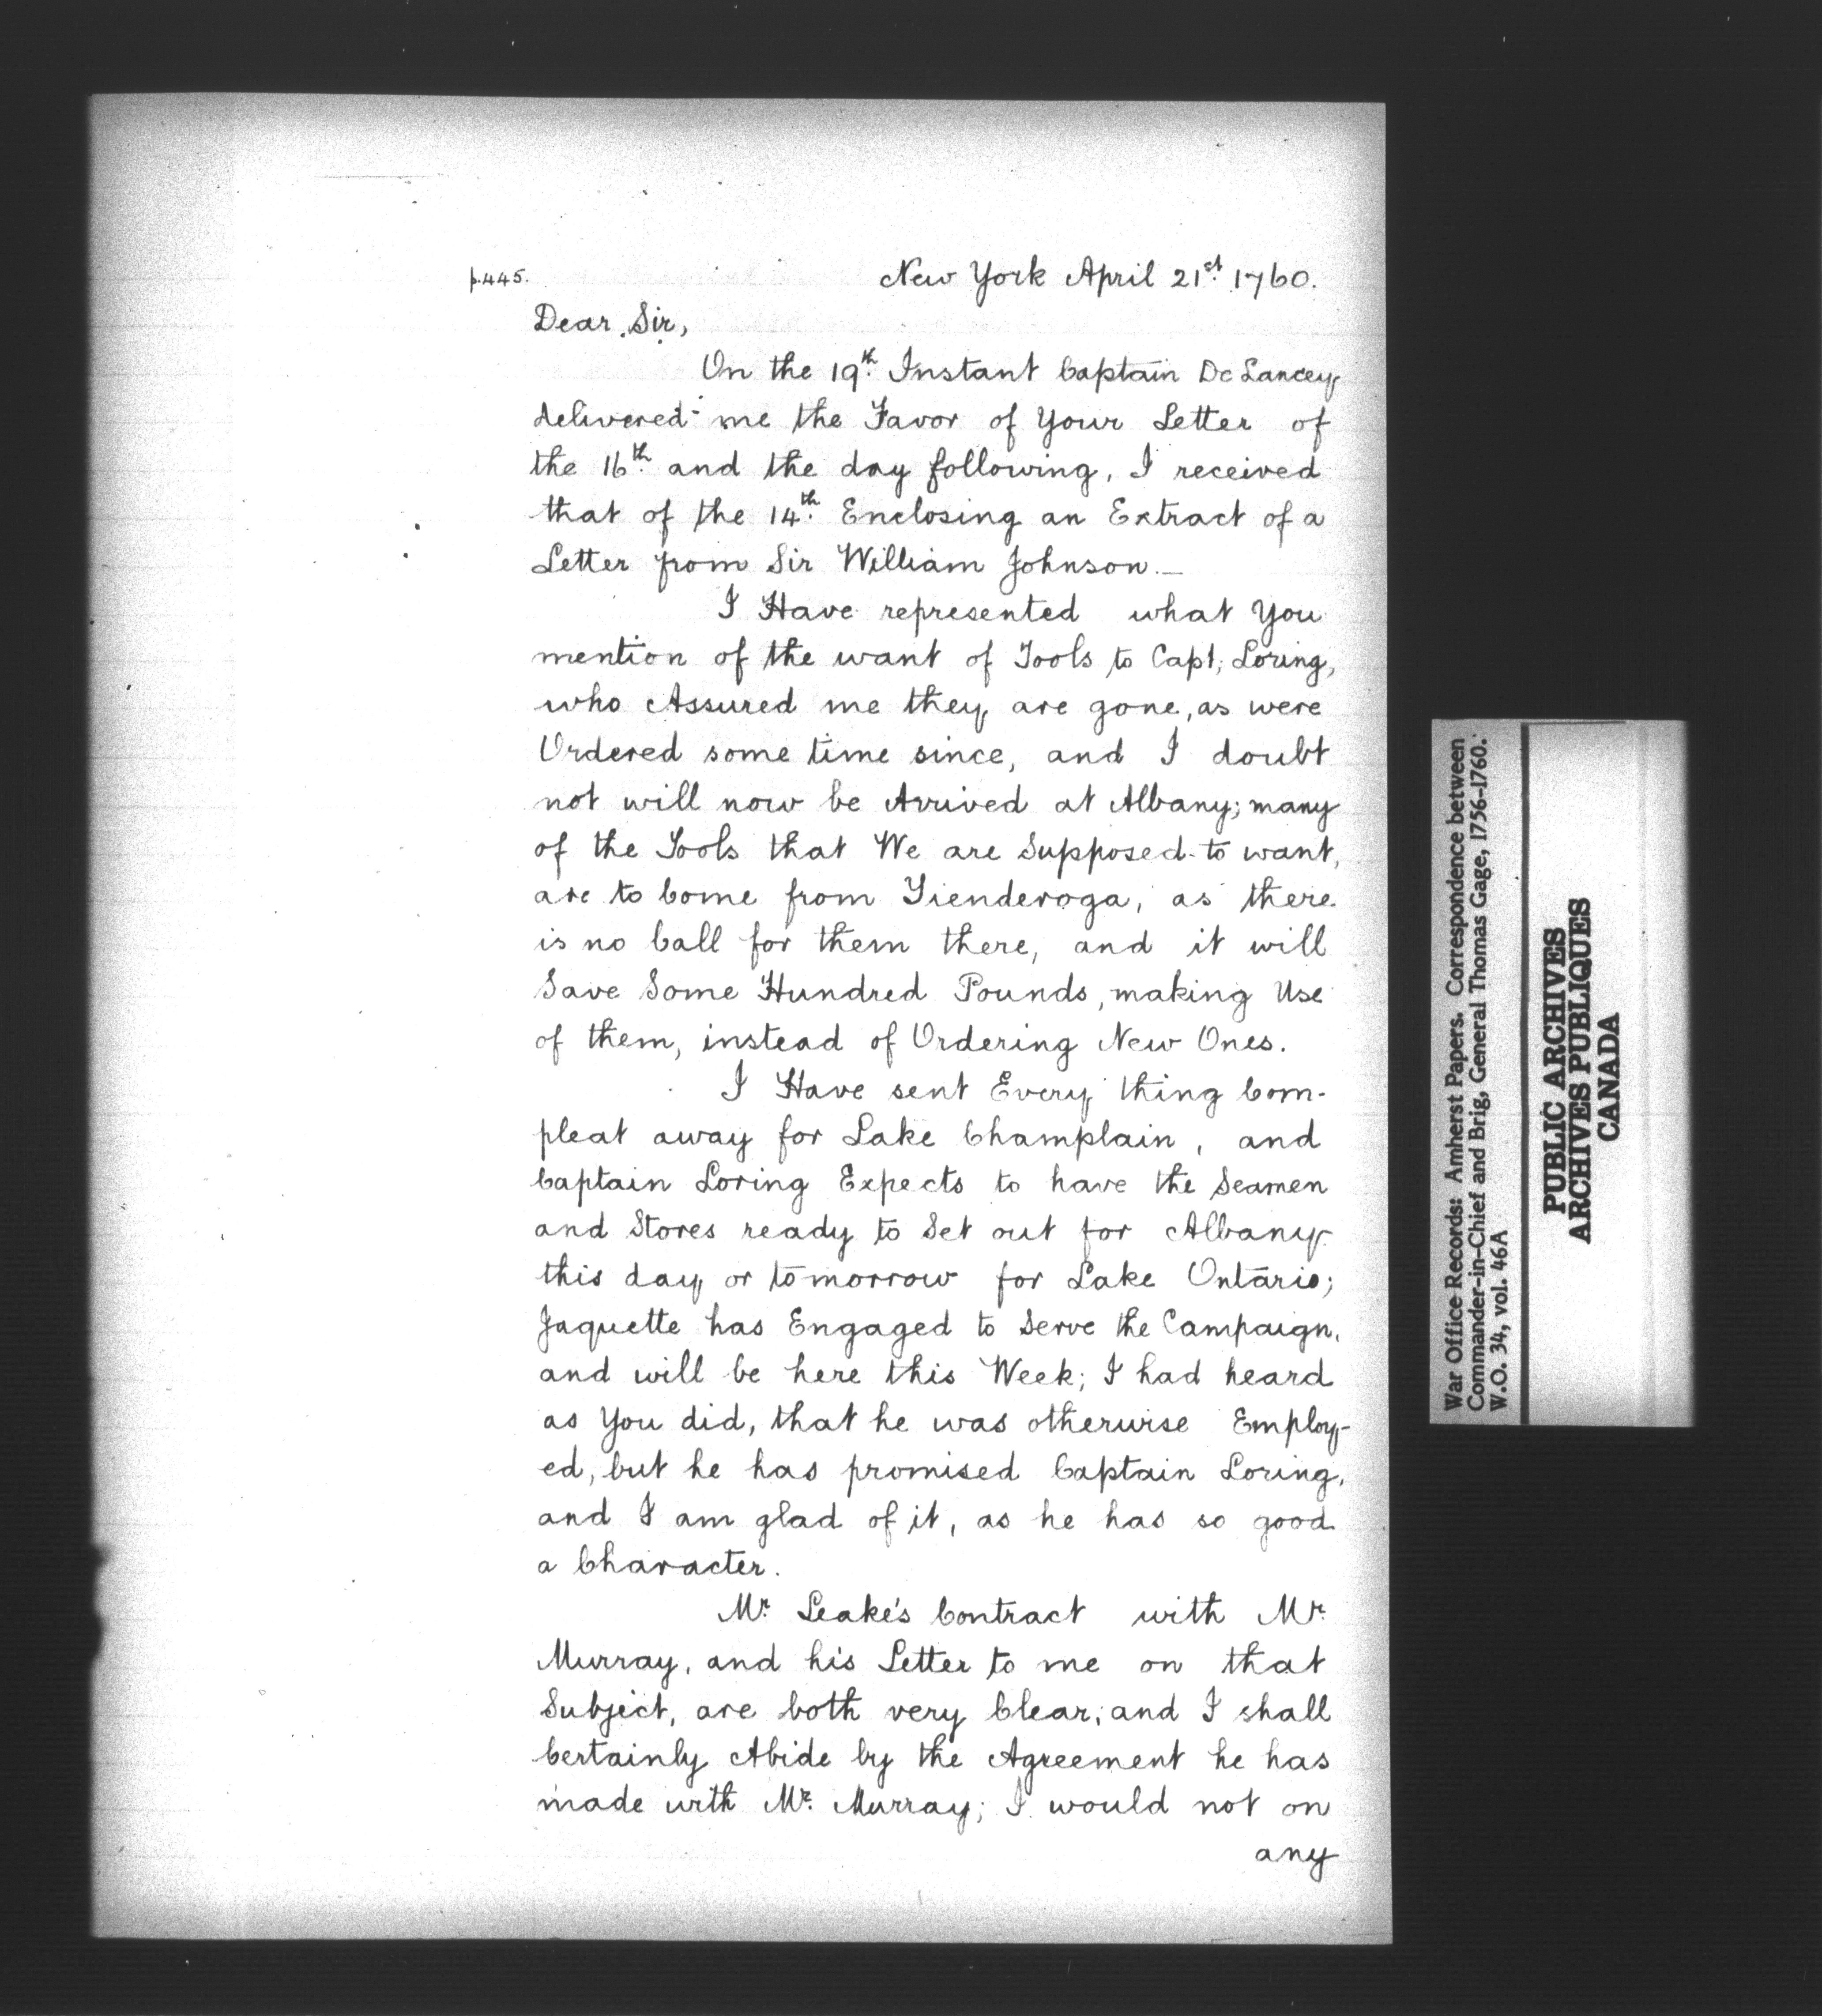 p.445.
New York April 21st. 1760.
Dear Sir,
On the 19th. Instant Captain De Lancey
delivered me the Favor of Your Letter of
the 16th. and the day following, I received
that of the 14th. Enclosing an Extract of a
Letter from Sir William Johnson.—
I Have represented what You
mention of the want of Tools to Capt, Loring,
who Assured me they are gone, as were
Ordered some time since, and I doubt
not will now be Arrived at Albany; many
of the Tools that We are Supposed to want,
are to Come from Tienderoga, as there
is no Call for them there, and it will
Save Some Hundred Pounds, making Use
of them, instead of Ordering New Ones.
I Have sent Every thing Com-
pleat away for Lake Champlain, and
Captain Loring Expects to have the Seamen
and Stores ready to Set out for Albany
this day or tomorrow for Lake Ontario;
Jaquette has Engaged to Serve the Campaign,
and will be here this Week; I had heard
as You did, that he was otherwise Employ-
ed, but he has promised Captain Loring,
and I am glad of it, as he has so good
a Character.
Mr. Leake's Contract with Mr.
Murray, and his Letter to me on that
Subject, are both very Clear; and I shall
Certainly Abide by the Agreement he has
made with Mr. Murray; I would not on
any
War Office Records: Amherst Papers. Correspondence between
Commander-in-Chief and Brig, General Thomas Gage, 1756-1760.
W.O. 34, vol. 46A
PUBLIC ARCHIVES
ARCHIVES PUBLIQUES
CANADA